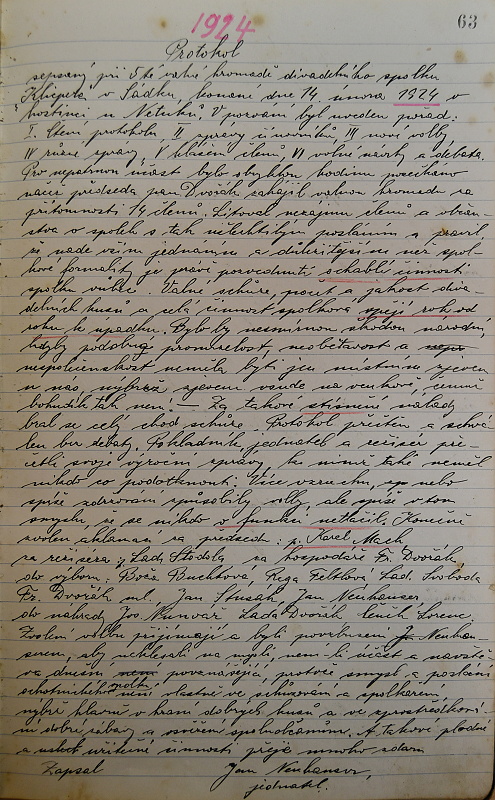 63
1924
Protokol
sepsaný při 5 té valné hromadě divadelního spolku
Klicpera v Sádku, konané dne 14. února 1924 v
hostinci u Netuků. V pozvání byl uveden pořad:
I. čtení protokolu II zprávy činovníků, III nové volby
IV různé zprávy, V hlášení členů VI volné návrhy a debata.
Pro nepatrnou účast bylo obvyklou hodinu posečkáno
načež předseda pan Dvořák zahájil valnou hromadu za
přítomnosti 14 členů. Litoval nezájmu členů a občan-
stva o spolek s tak ušlechtilým posláním a pravil
že nade vším jednáním a důležitějším než spol-
kové formality je právě pozvednutí ochablé činnosti
spolku vůbec. Valné schůze, počet a jakost diva-
delních kusů a celá činnost spolková spějí rok od
roku k úpadku. Bylo by nesmírnou škodou národní,
kdyby podobný proměnlivost, neobětavost a
nespolečenskost neměla býti jen místním zjevem
u nás, nýbrž zjevem všude na venkově, čemuž
bohudík tak není! — Za takové stísněné nálady
bral se celý chod schůze. Protokol přečten a schvá-
len bez debaty. Pokladník, jednatel a režisér pře-
četli svoje výroční zprávy, ku nimž také neměl
nikdo co podotknouti. Více vzruchu,
spíše zdržování způsobily volby, ale spíše v tom
smyslu, že se nikdo o funkci netlačil. Konečně
zvolen aklamací za předsedu: p. Karel Mach
za režiséra: p. Lad. Stodola za hospodáře Fr. Dvořák,
do výboru: Božа Buchtová, Lad. Svoboda
Fr. Dvořák ml. Jan Stusák Jan Neuhauser
do náhrady Lada Dvořák Lorenc
Zvolení volbu přijímají a byli povzbuzeni Neuhau-
serem, aby neklesali na mysli, není-li účast a návště-
va dnešní povznášející, protože smysl a poslání
ochotnického není vlastně ve schůzování a spolkaření,
nýbrž hlavně v hraní dobrých kusů a ve zprostředková-
ní dobré zábavy a společnosti. A takové plodné
a činnosti přeje mnoho zdaru
Zapsal Jan Neuhauser,
jednatel.